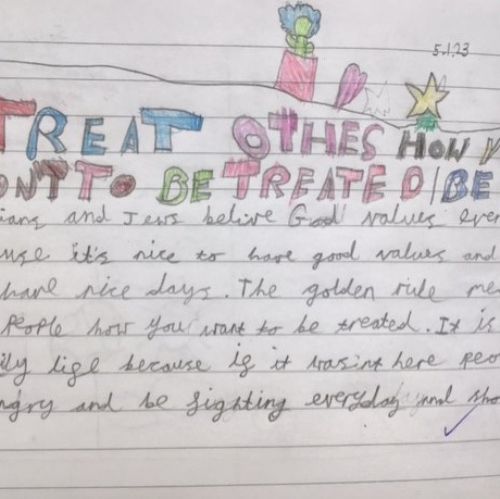 5.1.23
TREAT OTHES HOW Y
ONT TO BE TREATED/BE
ians and Jews belive God values ever
use it's nice to have good values and
have nice days. The golden rule me
People how you want to be treated. It is
ily lige because ig it wasint here peo
ngry and be gighting everyday and sho